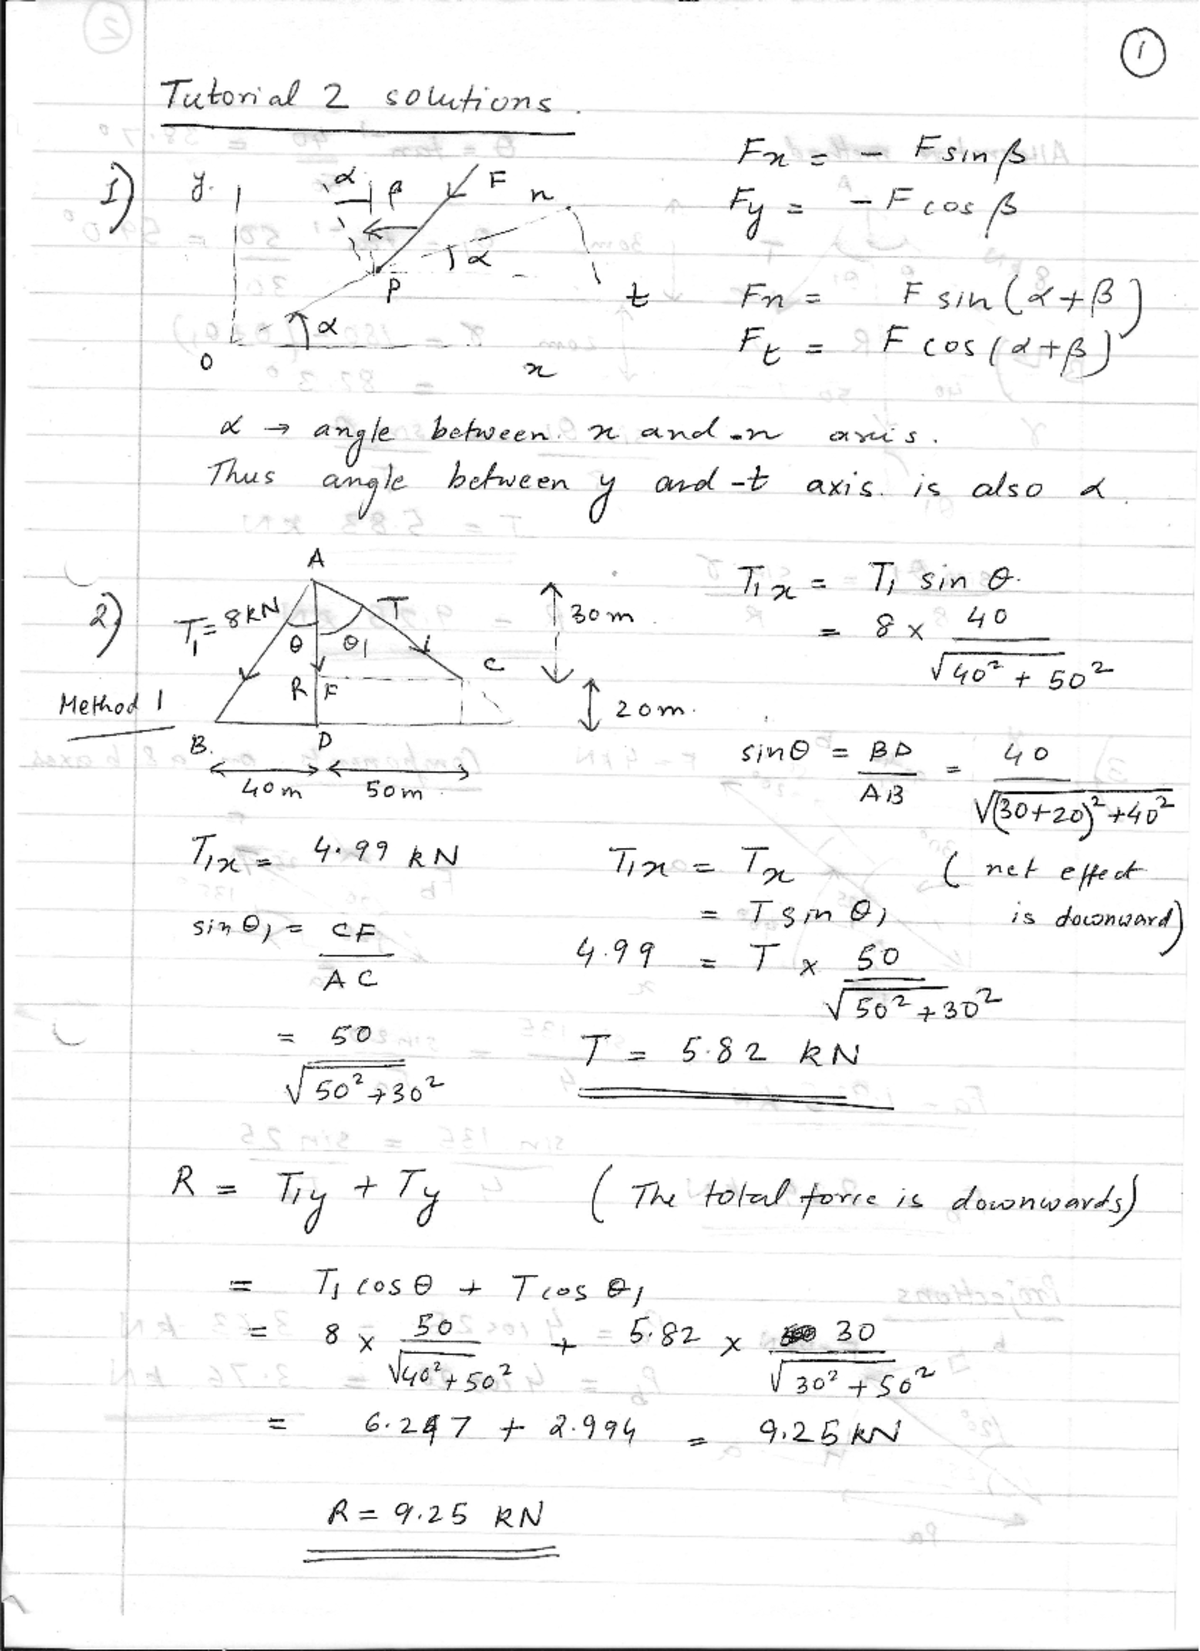 1
Tutorial 2 solutions.
1)
y.
α
β
F
n
α
P
t
α
O
x
Fx = - F sin β
Fy = - F cos β
Fn = F sin (α+β)
Ft = F cos (α+β)
α → angle between x and n axis.
Thus angle between y and -t axis. is also α.
2)
Method 1
A
T1 = 8kN
T
θ
θ1
C
R
F
B.
D
40m
50m.
30m.
20m.
T1x = T1 sin θ.
= 8 × 40/√40²+50²
sinθ = BD/AB = 40/√(30+20)²+40²
T1x = 4.99 kN
T1x = Tx (net effect is downward)
= T sin θ1
sin θ1 = CF/AC
4.99 = T × 50/√50²+30²
= 50/√50²+30²
T = 5.82 kN
R = T1y + Ty (The total force is downwards)
= T1 cos θ + T cos θ1
= 8 × 50/√40²+50² + 5.82 × 30/√30²+50²
= 6.247 + 2.994 = 9.25 kN
R = 9.25 kN